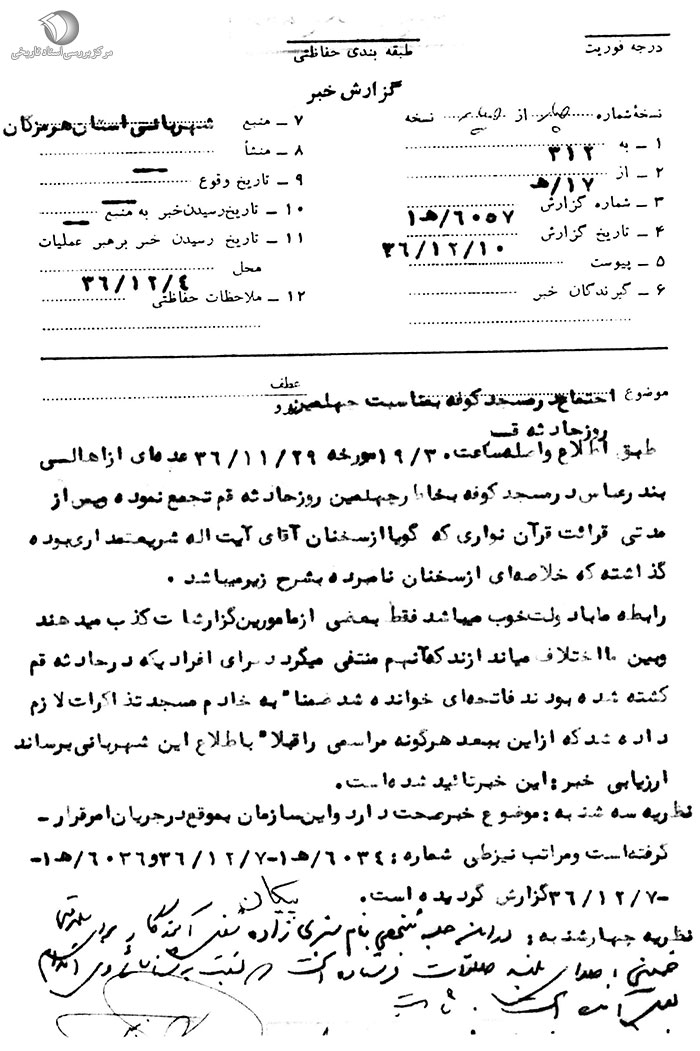 مرکز بررسی اسناد تاریخی
درجه فوریت
طبقه بندی حفاظتی
گزارش خبر
نسخهٔ شماره چهار از چهار نسخه
۱ ــ به ۳۱۲
۲ ــ از ۱۷/هـ
۳ ــ شماره گزارش ۶۰۵۷/هـ۱
۴ ــ تاریخ گزارش ۳۶/۱۲/۱۰
۵ ــ پیوست
۶ ــ گیرندگان خبر
۷ ــ منبع شهربانی استان هرمزگان
۸ ــ منشأ
۹ ــ تاریخ وقوع
۱۰ ــ تاریخ رسیدن خبر به منبع
۱۱ ــ تاریخ رسیدن خبر برهبر عملیات
محل ۳۶/۱۲/۴
۱۲ ــ ملاحظات حفاظتی
عطف
موضوع اجتماع در مسجد کوفه بمناسبت چهلمین
روز حادثه قم
طبق اطلاع واصله ساعت ۱۹/۳۰ مورخه ۳۶/۱۱/۲۹ عده‌ای از اهالی
بندرعباس در مسجد کوفه بخاطر چهلمین روز حادثه قم تجمع نموده و پس از
مدتی قرائت قرآن نواری که گویا از سخنان آقای آیت اله شریعتمداری بوده
گذاشته که خلاصه‌ای از سخنان نامبرده بشرح زیر میباشد ۰
رابطه ما با دولت خوب میباشد فقط بعضی از مامورین گزارشات کذب میدهند
و بین ما اختلاف میاندازند که آنهم منتفی میگردد برای افرادیکه در حادثه قم
کشته شده بودند فاتحه‌ای خوانده شد ضمنا" به خادم مسجد تذاکرات لازم
داده شد که از این ببعد هرگونه مراسمی را قبلا" باطلاع این شهربانی برساند
ارزیابی خبر: این خبر تائید شده است۰
نظریه سه شنبه : موضوع خبر صحت دارد و این سازمان بموقع در جریان امر قرار -
گرفته است و مراتب نیز طی شماره : ۶۰۳۴/هـ۱-۳۶/۱۲/۷ و ۶۰۳۶/هـ۱-
۳۶/۱۲/۷- گزارش گردیده است. پیکان
نظریه چهارشنبه :
خمینی